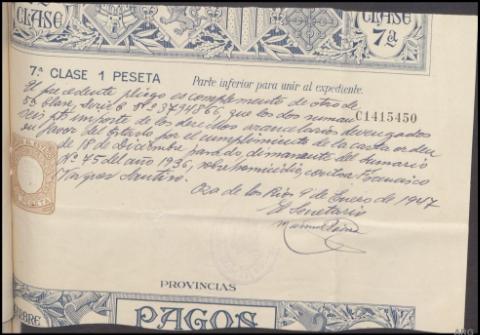 CLASE
CLASE
7ª
7.ª CLASE 1 PESETA
Parte inferior para unir al expediente.
El precedente pliego es complemento de otro de
5ª clase, Serie B Nº 3794866, que los dos suman
C1415450
seis pts importe de los derechos arancelarios devengados
en favor del Estado por el cumplimiento de la carta orden
de 18 de Diciembre pasado, dimanante del sumario
Nº 75 del año 1936, sobre homicidio, contra Francisco
Oza de los Rios 9 de Enero de 1947
El Secretario
PROVINCIAS
TIMBRE
PAGOS